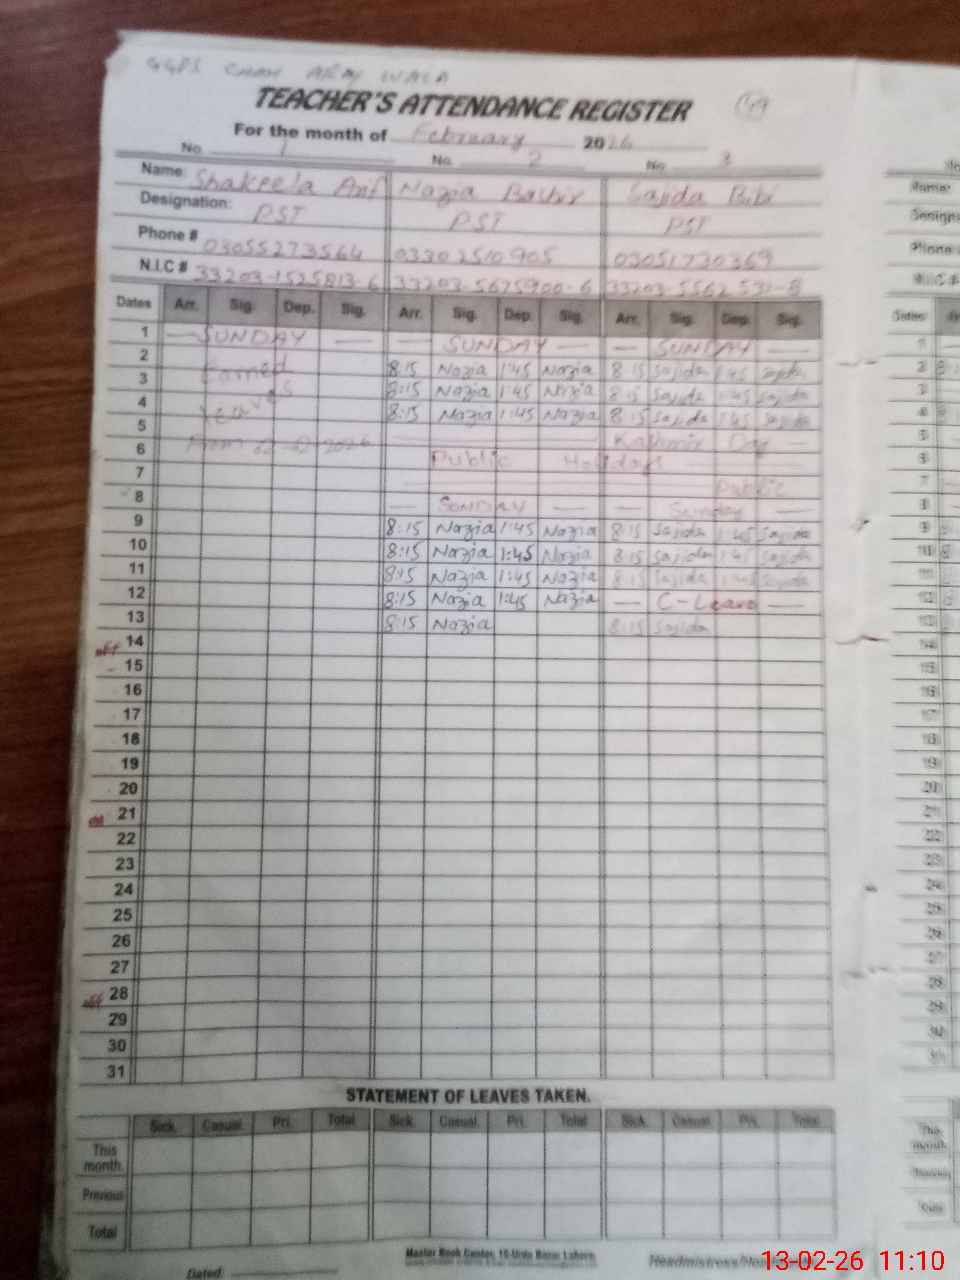 GGPS CHAH ARAY WALA
TEACHER'S ATTENDANCE REGISTER
For the month of February 2026
No. 1 No. 2 No. 3
Name: Shakeela Arif Nazia Bashir Sajida Bibi
Designation: PST PST PST
Phone # 03055273564 03302510905 03051730369
N.I.C # 33203-1525813-6 33203-5675900-6 33203-5562531-8
Dates Arr. Sig. Dep. Sig. Arr. Sig. Dep. Sig. Arr. Sig. Dep. Sig.
1 — SUNDAY — — SUNDAY — — SUNDAY —
2 Earned 8:15 Nazia 1:45 Nazia 8:15 Sajida 1:45 Sajida
3 8:15 Nazia 1:45 Nazia 8:15 Sajida 1:45 Sajida
4 8:15 Nazia 1:45 Nazia 8:15 Sajida 1:45 Sajida
5 Kashmir Day —
6 From 02-02-2026 Public Holidays
7 Public
8 — SUNDAY — — Sunday —
9 8:15 Nazia 1:45 Nazia 8:15 Sajida 1:45 Sajida
10 8:15 Nazia 1:45 Nazia 8:15 Sajida 1:45 Sajida
11 8:15 Nazia 1:45 Nazia 8:15 Sajida 1:45 Sajida
12 8:15 Nazia 1:45 Nazia — C-Leave —
13 8:15 Nazia 8:15 Sajida
off 14
15
16
17
18
19
20
21
22
23
24
25
26
27
off 28
29
30
31
STATEMENT OF LEAVES TAKEN.
Sick. Casual. Pri. Total Sick. Casual. Pri. Total Sick. Casual. Pri. Total
This month.
Previous
Total
Master Book Center, 15-Urdu Bazar Lahore.
Dated:
13-02-26 11:10